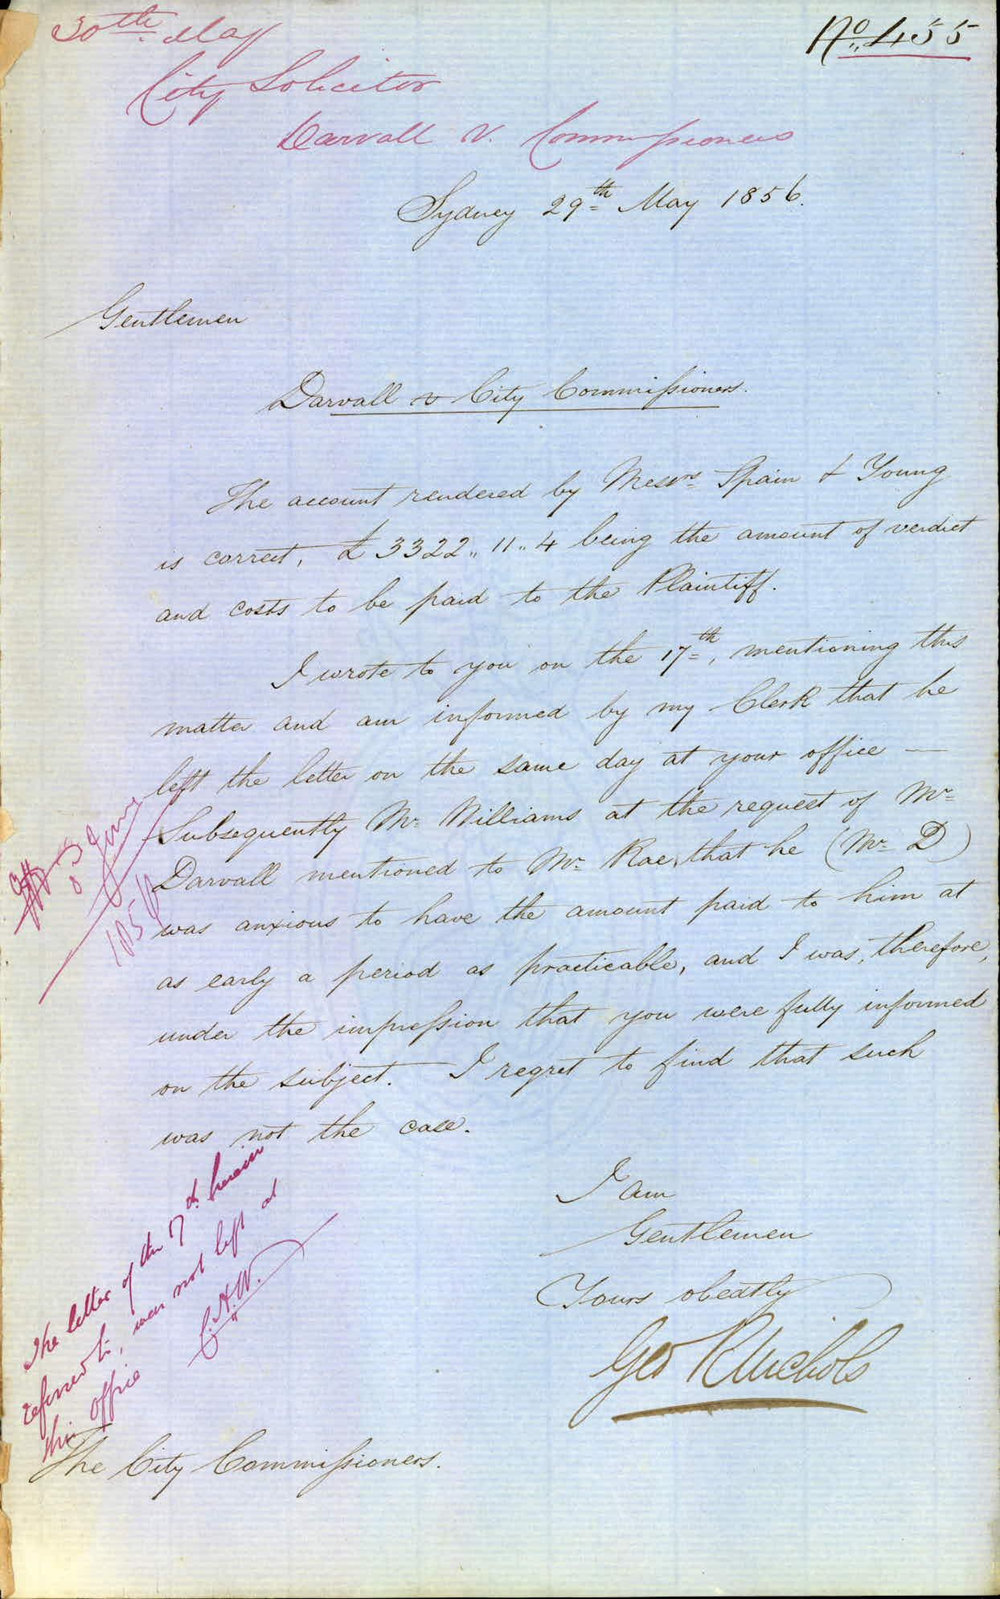 No. 455
30th. May
City Solicitor
Darvall v. Commissioners
Sydney 29th May 1856.
Gentlemen
Darvall v City Commissioners.
The account rendered by Messrs Spain & Young
is correct, £3322.. 11.. 4 being the amount of verdict
and costs to be paid to the Plaintiff.
I wrote to you on the 17th, mentioning this
matter and am informed by my Clerk that he
left the letter on the same day at your office —
Subsequently Mr Williams at the request of Mr
Darvall mentioned to Mr Rae, that he (Mr D)
was anxious to have the amount paid to him at
as early a period as practicable, and I was, therefore,
under the impression that you were fully informed
on the subject. I regret to find that such
was not the case.
I am
Gentlemen
Yours obedtly
Geo R Nichols
1856
The letter of the 17th herein
referred to, was not left at
this office
G.H.W.
The City Commissioners.